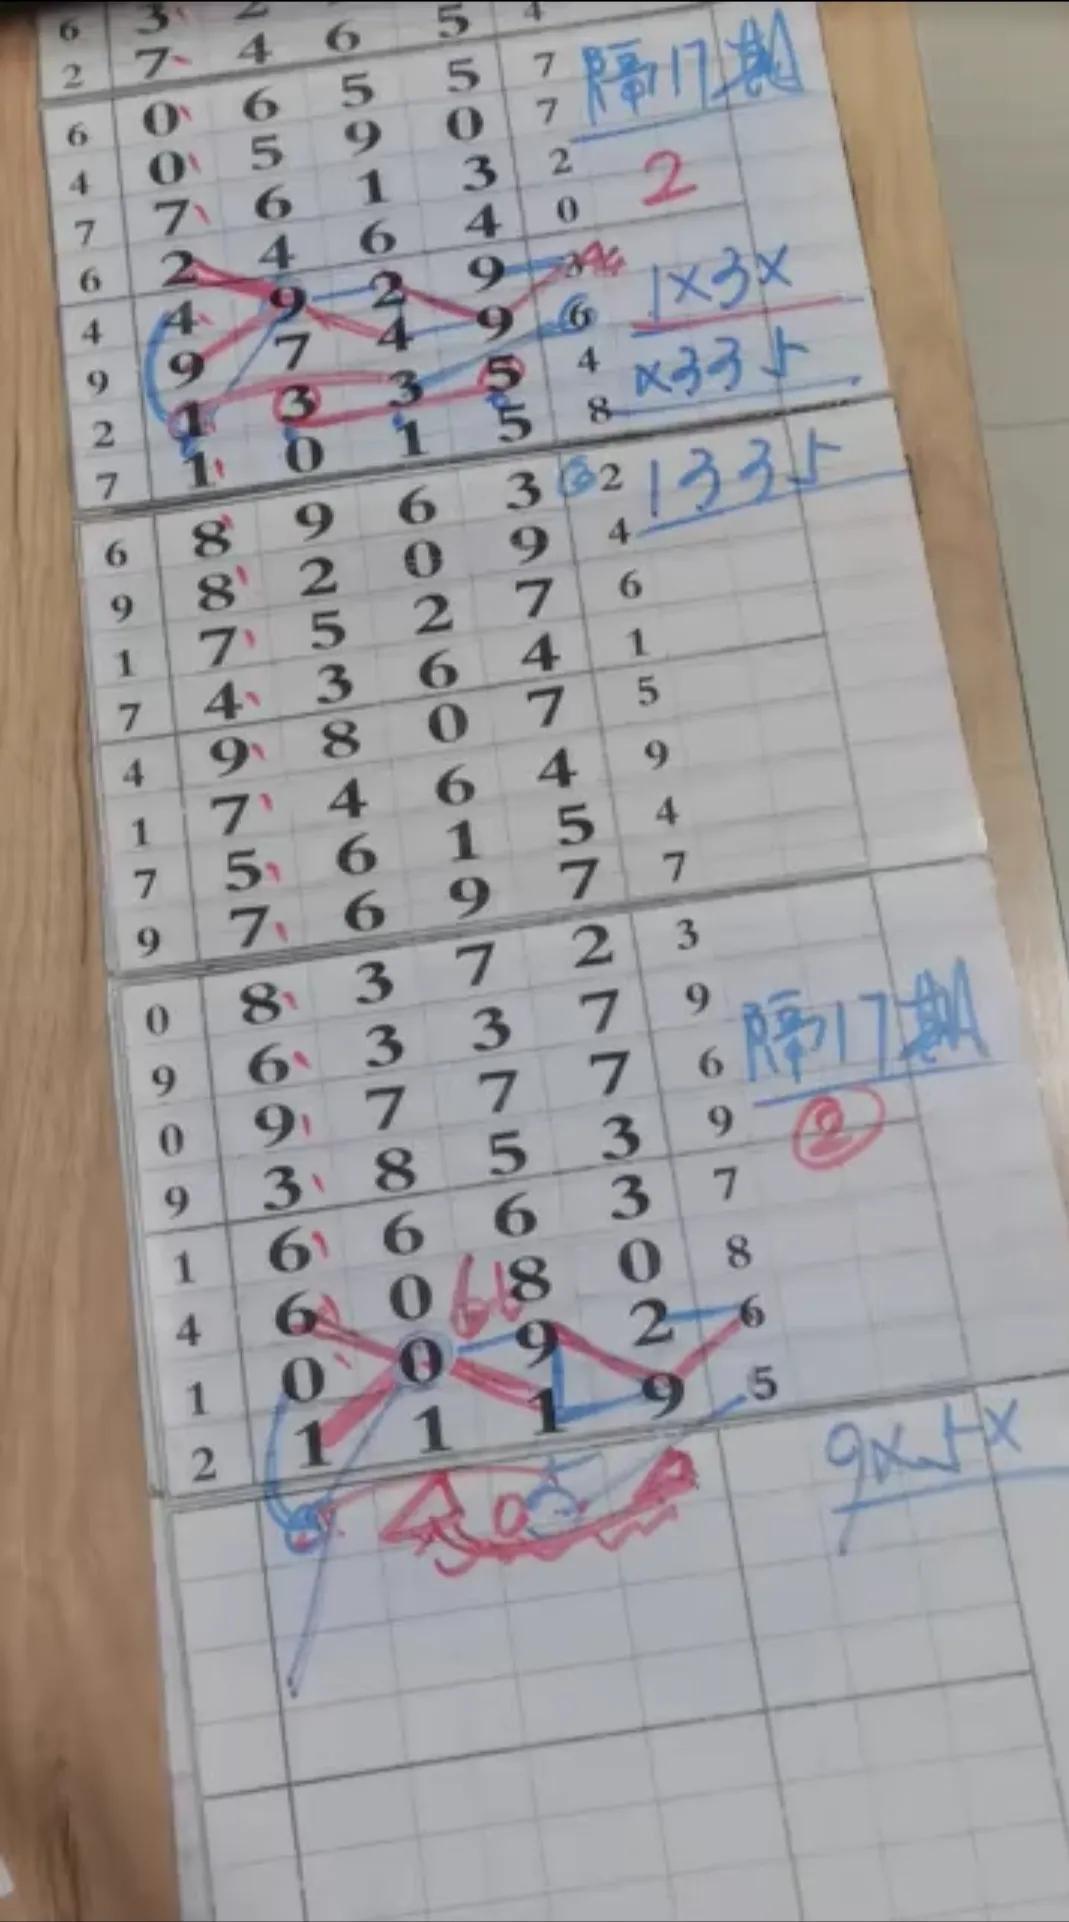 6 3 2 5 4
2 7 4 6 5
6 0 6 5 5 7 隔17期
4 0 5 9 0 7
7 7 6 1 3 2 2
6 2 4 6 4 0
4 4 9 2 9 3 1×3×
9 9 7 4 9 6
2 1 3 3 5 4 ×335
7 1 0 1 5 8
6 8 9 6 3 2 1335
9 8 2 0 9 4
1 7 5 2 7 6
7 4 3 6 4 1
4 9 8 0 7 5
1 7 4 6 4 9
7 5 6 1 5 4
9 7 6 9 7 7
0 8 3 7 2 3
9 6 3 3 7 9 隔17期
0 9 7 7 7 6
9 3 8 5 3 9 2
1 6 6 6 3 7
4 6 0 66 8 0 8
1 0 0 9 2 6
2 1 1 1 9 5
9×5×
0